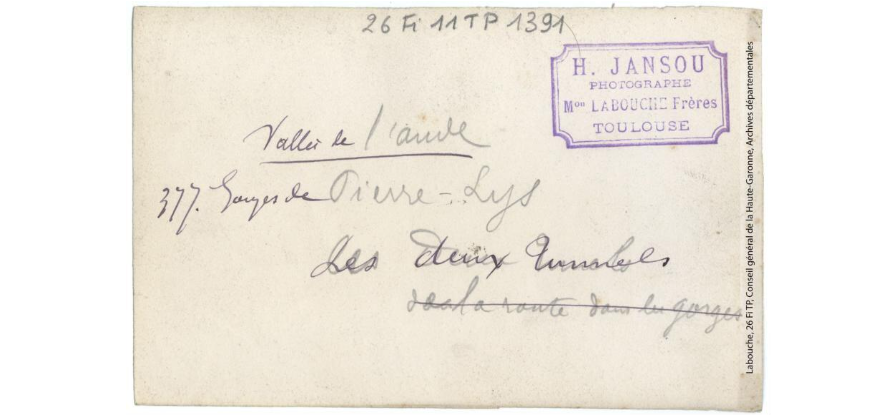 26 Fi 11 TP 1391
H. JANSOU
PHOTOGRAPHE
Mon LABOUCHE Frères
TOULOUSE
Vallée de l'aude
377. Gorges de Pierre-Lys
Les Deux Tunnels
de la route dans les gorges
Labouche, 26 Fi TP, Conseil général de la Haute-Garonne, Archives départementales